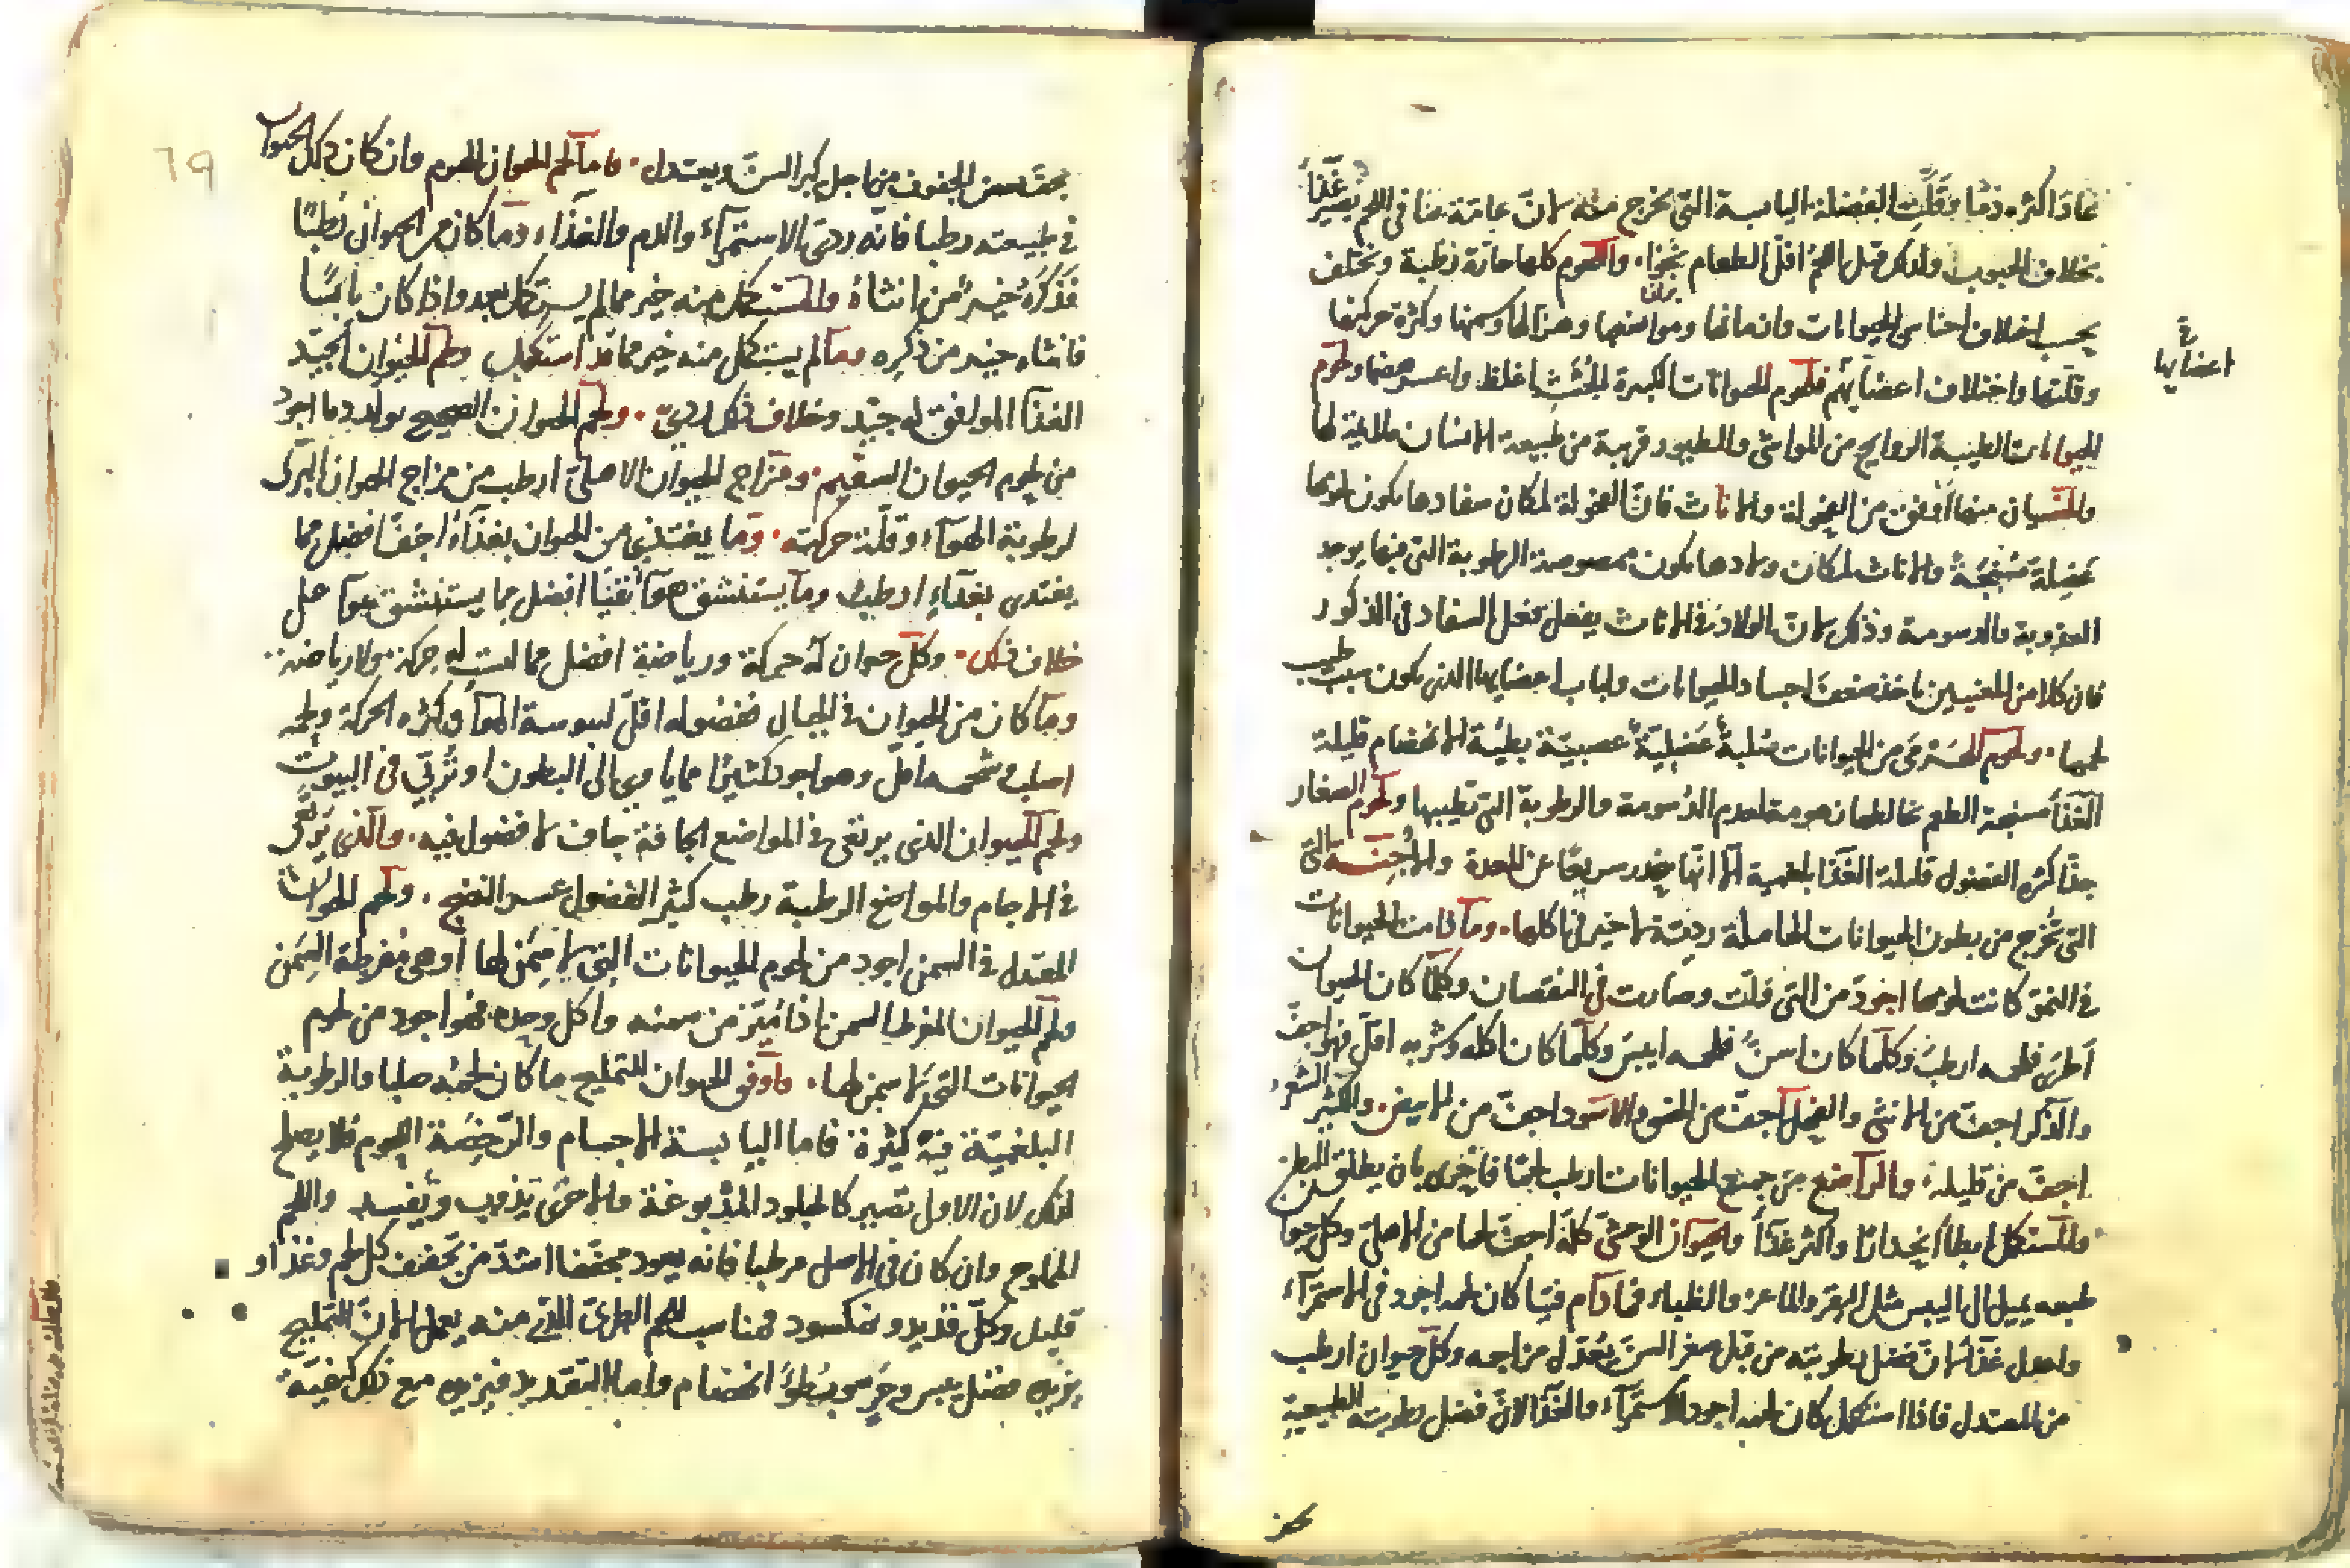 غذاؤا اكثره دما وقلت الفضلة اليابسة التي تخرج منه لان عامة منافى اللحم يصير غذاء
بخلاف الحبوب ولذلك قيل اللحم اقل الطعام نجوا، واللحوم كلها حارة رطبة وتختلف
بحسب اختلاف اجناس الحيوانات وازمانها ومواضعها وهزالها وسمنها وكثرة حركتها
في
اعضائها
وقلتها واختلاف اعضائهم فلحوم الحيوانات الكبيرة الجثث اغلظ واعسر هضما ولحوم
الحيوانات الطيبة الروايح من المواشي والطيور قريبة من طبيعة الانسان ملائمة لها
والخصيان منها افضل من الفحولة والاناث فان الفحولة لمكان سفادها يكون لحومها
عضلة متنجنة والاناث لمكان ولادها يكون ممصوصة الرطوبة التي فيها يوجد
العذوبة والدسومة وذلك لان الولاد في الاناث يفعل فعل السفاد في الذكور
فان كلا من المعنيين ياخذ صفو اجساد الحيوانات ولباب اعضايها الذي يكون سبب طيب
لحمها، ولحوم الهرمى من الحيوانات صلبة عضلية عصبية بطيئة الانهضام قليلة
الغذا مسيخة الطعم مخالطها زهومة لعدم الدسومة والرطوبة التي تطيبها ولحوم الصغار
جدا كثيرة الفضول قليلة الغذا بلغمية الا انها ينحدر سريعا عن المعدة والاجنة التي
التي تخرج من بطون الحيوانات الحاملة رديئة لا خير في اكلها، وما دامت الحيوانات
في النمو كانت لحومها اجود من التي قلت وصارت في النقصان وكلما كان الحيوان
اطرى فلحمه ارطب وكلما كان اسن فلحمه ايبس وكلما كان اكله وشربه اقل فهو اجف
والذكر اجف من الانثى والفحل اجف من الخصي والاسود اجف من الابيض، والكثير الشعر
اجف من قليله، والراضع من جميع الحيوانات ارطب لحما فاحرى بان يطلق البطن
والمستكمل ابطأ انحدارا واكثر غذاء والحيوان الوحشي كله اجف لحما من الاهلي وكل حيوان
طبعه يميل الى اليبس مثل البقر والماعز والظباء فما دام فتيا كان لحمه اجود في الاستمراء
واعدل غذاء لان فضل رطوبته من قبل صغر السن يعدل مزاجه وكل حيوان ارطب
من المعتدل فاذا استكمل كان لحمه اجود الاستمراء والغذا لان فضل رطوبته الطبيعية
69
يجف بعض الجفوف من اجل كبر السن ويعتدل، فاما لحم الحيوان الهرم وان كان ذلك الحيوان
في طبيعته رطبا فانه ردي الاستمراء والدم والغذاء، وما كان من الحيوان رطبا
فذكره خير من انثاه والمستكمل منه خير مما لم يستكمل بعد واذا كان يابسا
فانثاه خير من ذكره وما لم يستكمل منه خير مما قد استكمل ولحم الحيوان الجيد
الغذا الموافق له جيد وخلاف ذلك ردي، ولحم الحيوان الصحيح يولد دما اجود
من لحوم الحيوان السقيم، ومزاج الحيوان الاهلي ارطب من مزاج الحيوان البري
لرطوبة الهواء وقلة حركته، وما يغتذي من الحيوان بغذاء اجف افضل مما
يغتذى بغذاء ارطب وما يستنشق هوآ نقيا افضل مما يستنشق هوآ على
خلاف ذلك، وكل حيوان له حركة ورياضة افضل مما ليست له حركة ولا رياضة
وما كان من الحيوان في الجبال ففضوله اقل ليبوسة الهوآ وكثرة الحركة ولحمه
اصلب وشحمه اقل وهو اجود كثيرا مما ياوي الى البطون او تربى في البيوت
ولحم الحيوان الذي يرتعى في المواضع الجافة جاف لا فضول فيه، والذي يرتعى
في الاجام والمواضع الرطبة رطب كثير الفضول عسر النضج، ولحم الحيوانات
المعتدل في السمن اجود من لحوم الحيوانات التي لا سمن لها او هي مفرطة السمن
ولحم الحيوان المفرط السمن اذا ميز من سمنه واكل وحده فهو اجود من لحوم
الحيوانات التي لا سمن لها، واوفق الحيوان للتمليح ما كان لحمه صلبا والرطوبة
البلغمية فيه كثيرة فاما اليابسة الاجسام والرخصة اللحوم فلا يصلح
لذلك لان الاول تصير كالجلود المدبوغة والاخرى يذوب ويفسد واللحم
المملوح وان كان في الاصل مرطبا فانه يعود مجففا اشد من تجفيف كل لحم وغذاؤه
قليل وكل قديد ونمكسود فمناسب للحم الطري الذي منه يعمل الا ان التمليح
يزيده فضل يبس وحر وبطؤ انهضام واما التقديد فيزيده مع ذلك كيفية